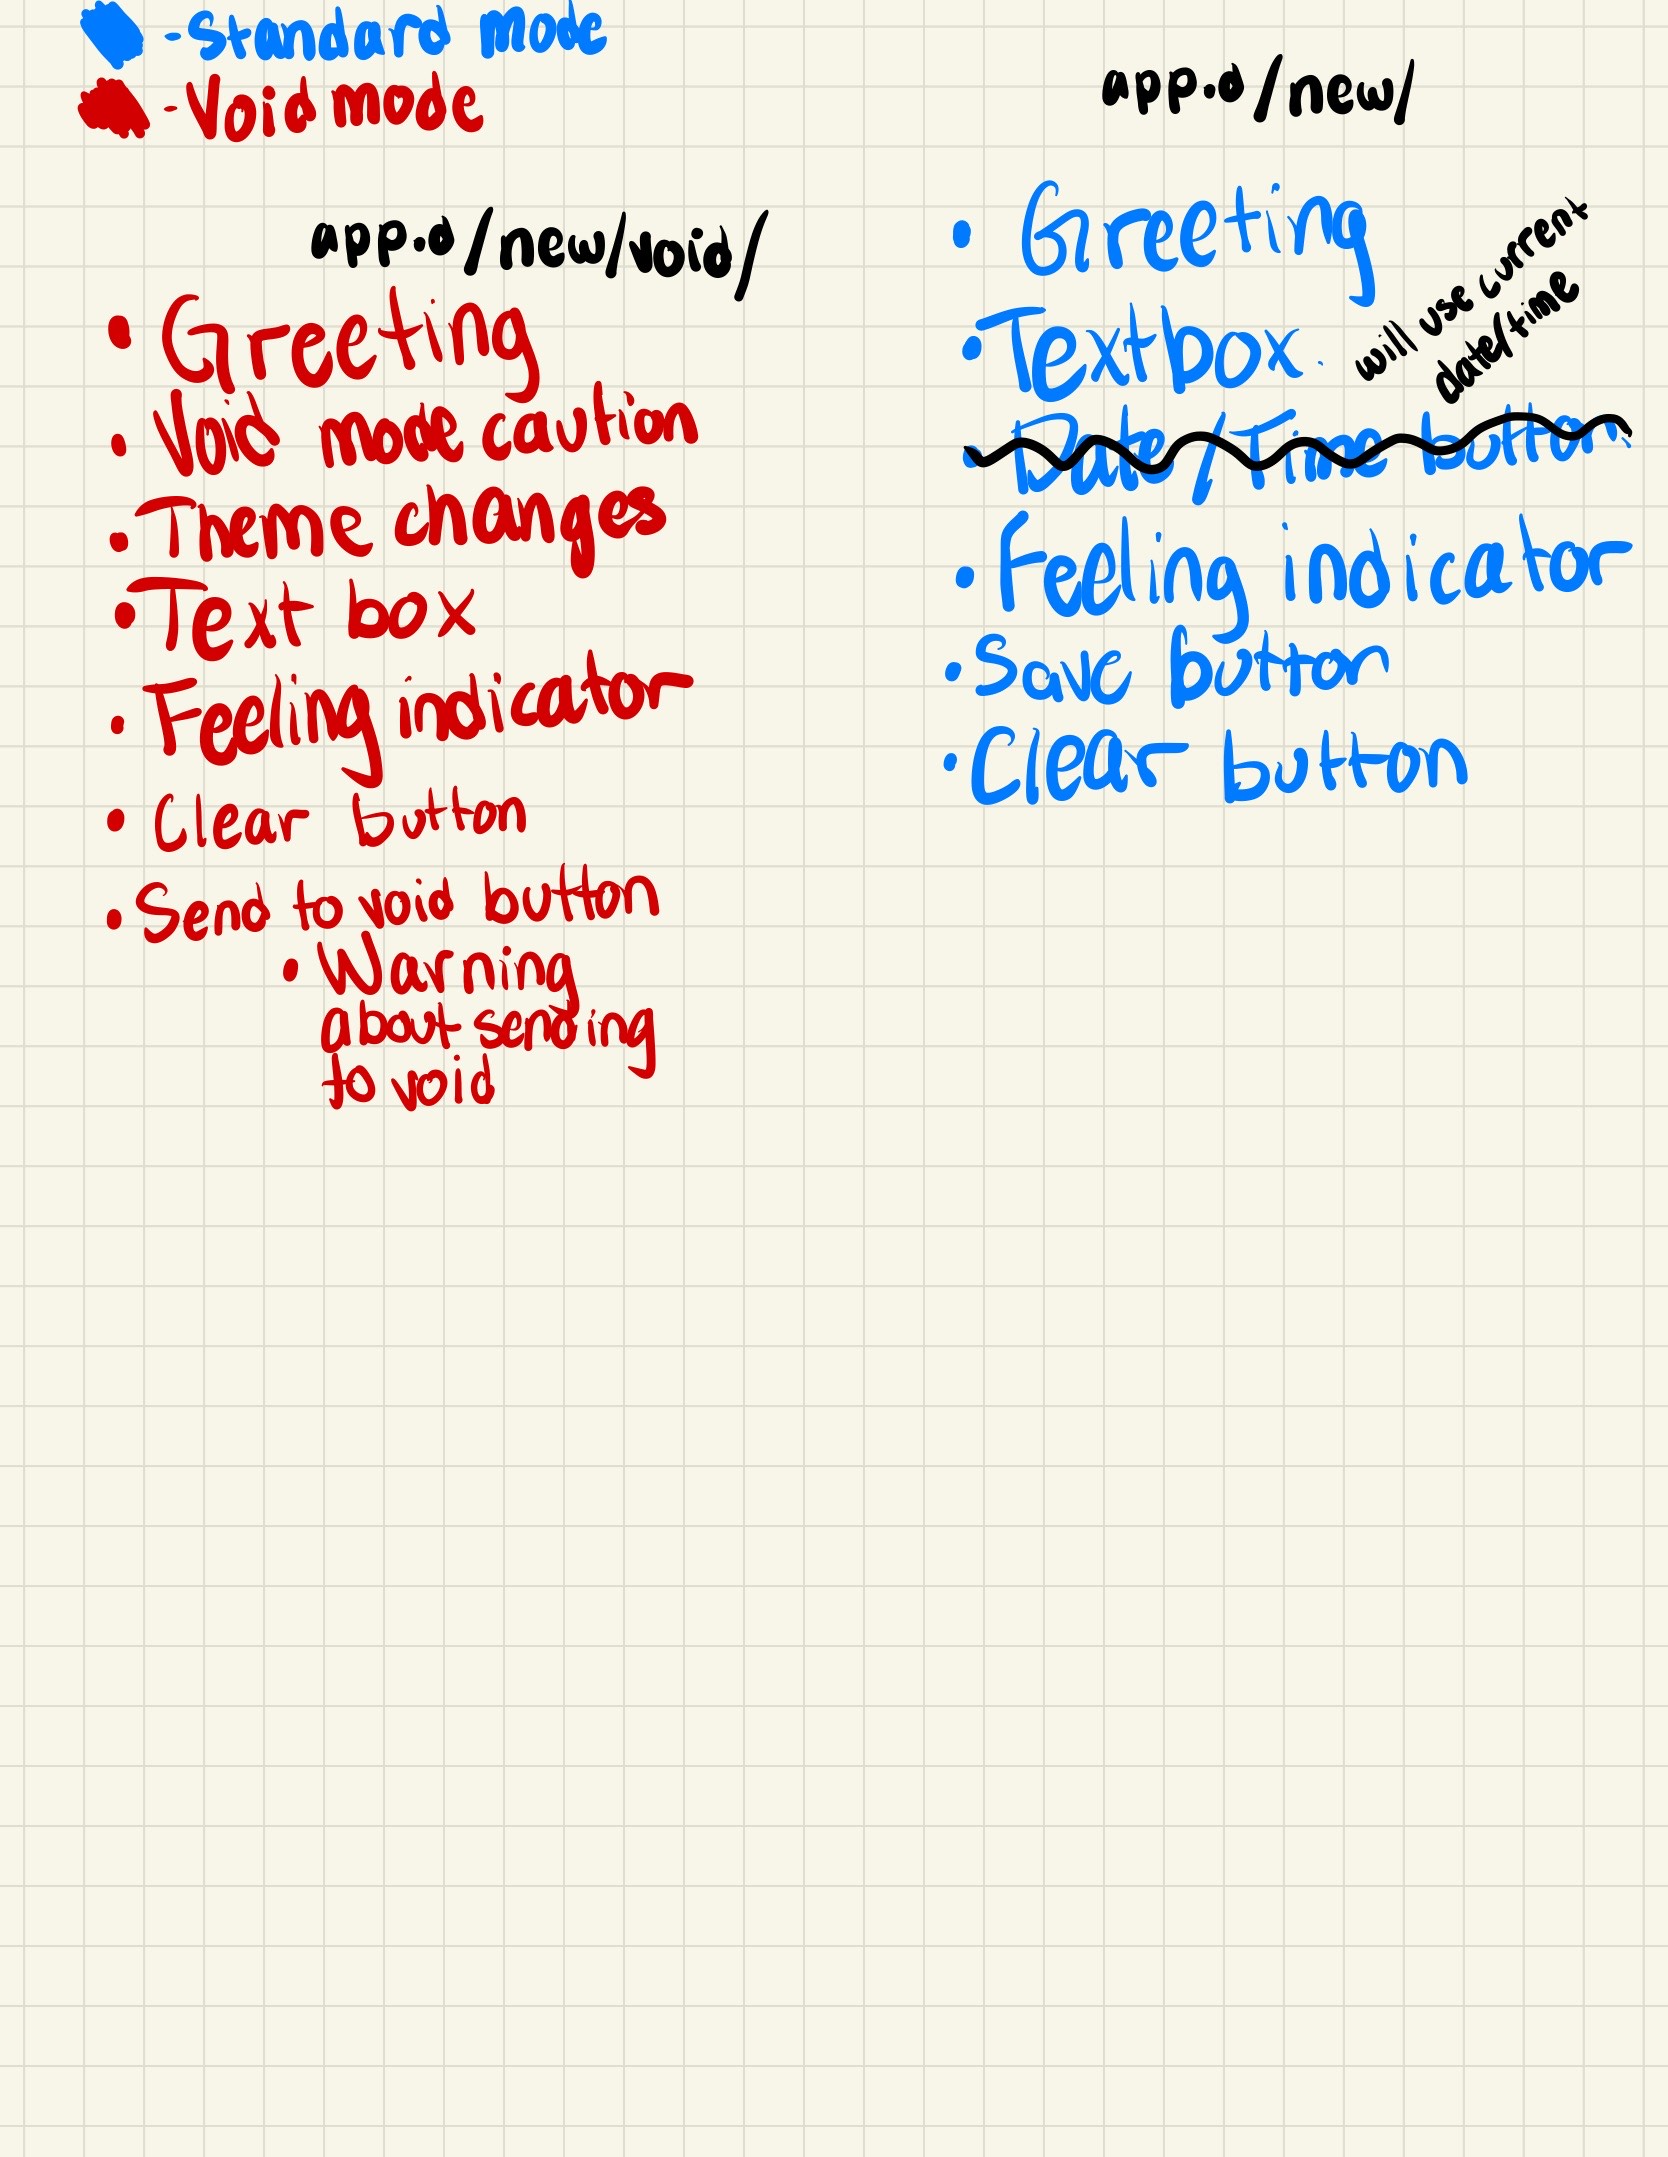 - Standard mode
- Void mode
app.d/new/void/
• Greeting
• Void mode caution
• Theme changes
• Text box
• Feeling indicator
• Clear button
• Send to void button
• Warning
about sending
to void
app.d/new/
• Greeting
• Textbox
will use current
date/time
• Date/Time button
• Feeling indicator
• Save button
• Clear button